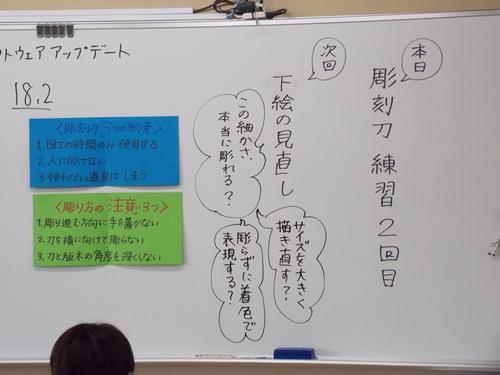 フトウェア アップデート
18.2
<彫刻刀 3つの約束>
1.図工の時間のみ使用する
2.人に向けない
3.使わない道具は しまう
<彫り方の注意3つ>
1.彫り進む方向に手を置かない
2.刀を横に向けて彫らない
3.刀と版木の角度を深くしない
本日
彫刻刀 練習2回目
次回
下絵の見直し
この細かさ、
本当に彫れる?
サイズを大きく
描き直す?
彫らずに着色で
表現する?